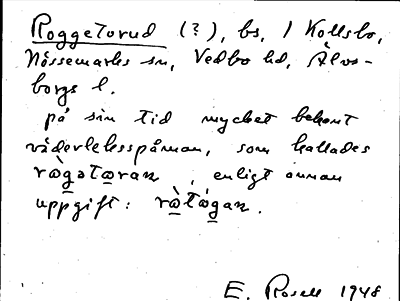 Roggetorud (?), bs, i Kollsbo,
Nössemarks sn, Vedbo hd, Älvs-
borgs l.
på sin tid mycket bekant
väderleksspåman, som kallades
rògətoran, enligt annan
uppgift: ròtə́gan.
E. Rosell 1948